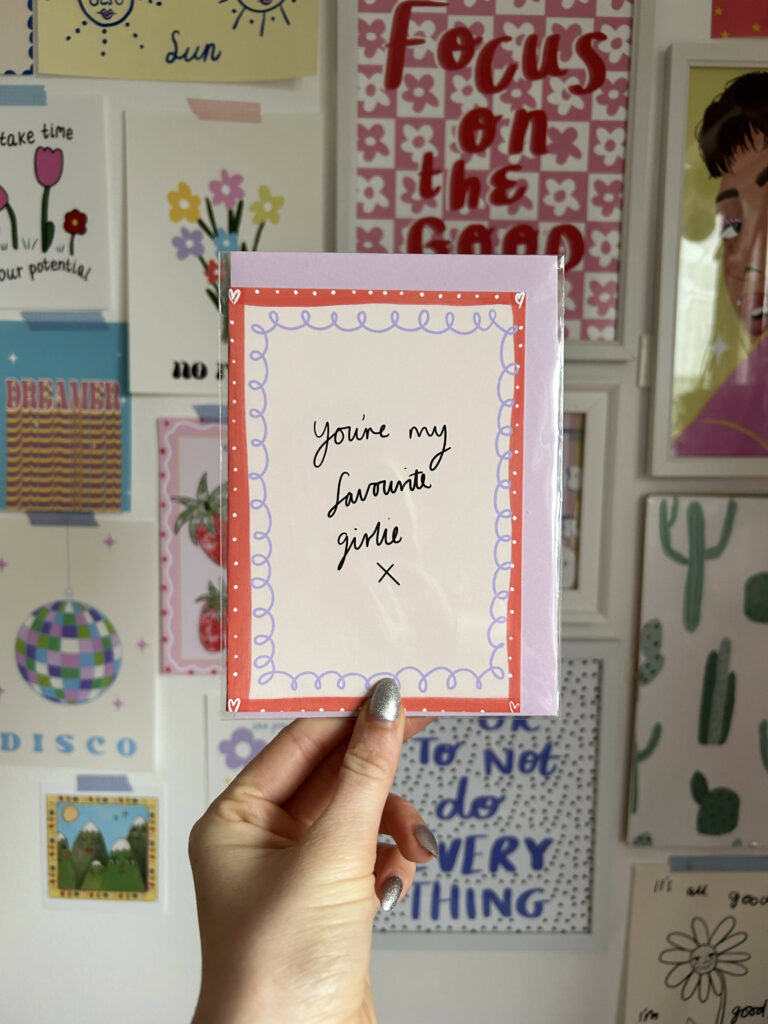 Sun
Focus
on
the
GOOD
take time
your potential
no
DREAMER
You're my
favourite
girlie
X
DISCO
TO NOT
do
EVERY
THING
it's all good
i'm good